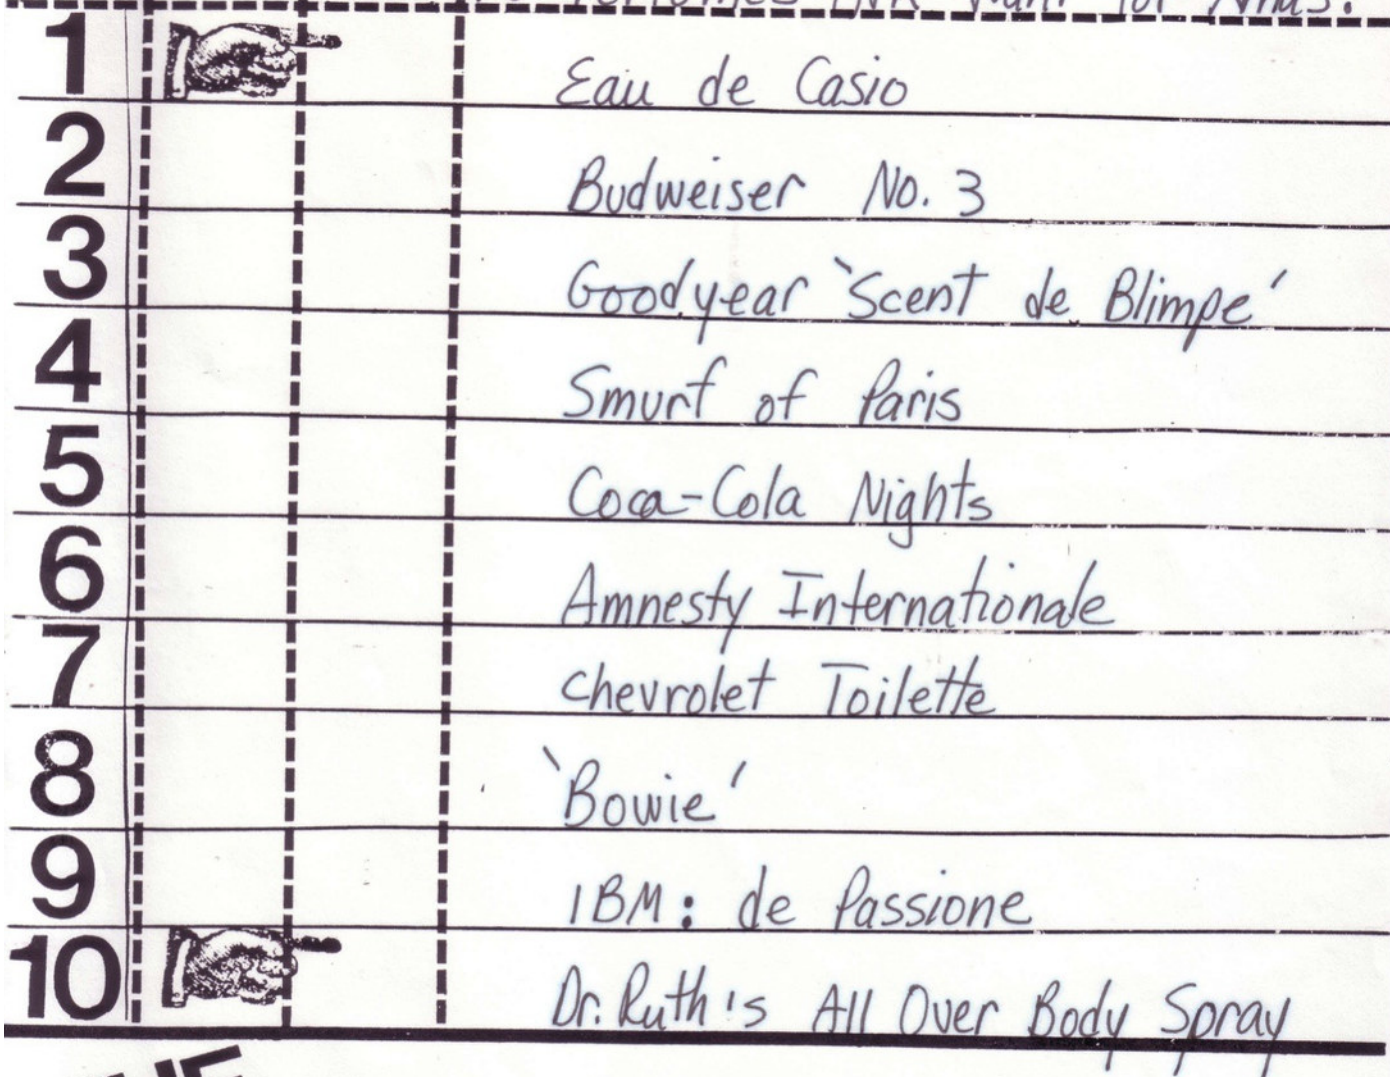 Perfumes INR Want for Xmas:
1 Eau de Casio
2 Budweiser No. 3
3 Goodyear `Scent de Blimpe'
4 Smurf of Paris
5 Coca-Cola Nights
6 Amnesty Internationale
7 Chevrolet Toilette
8 `Bowie'
9 IBM: de Passione
10 Dr. Ruth's All Over Body Spray